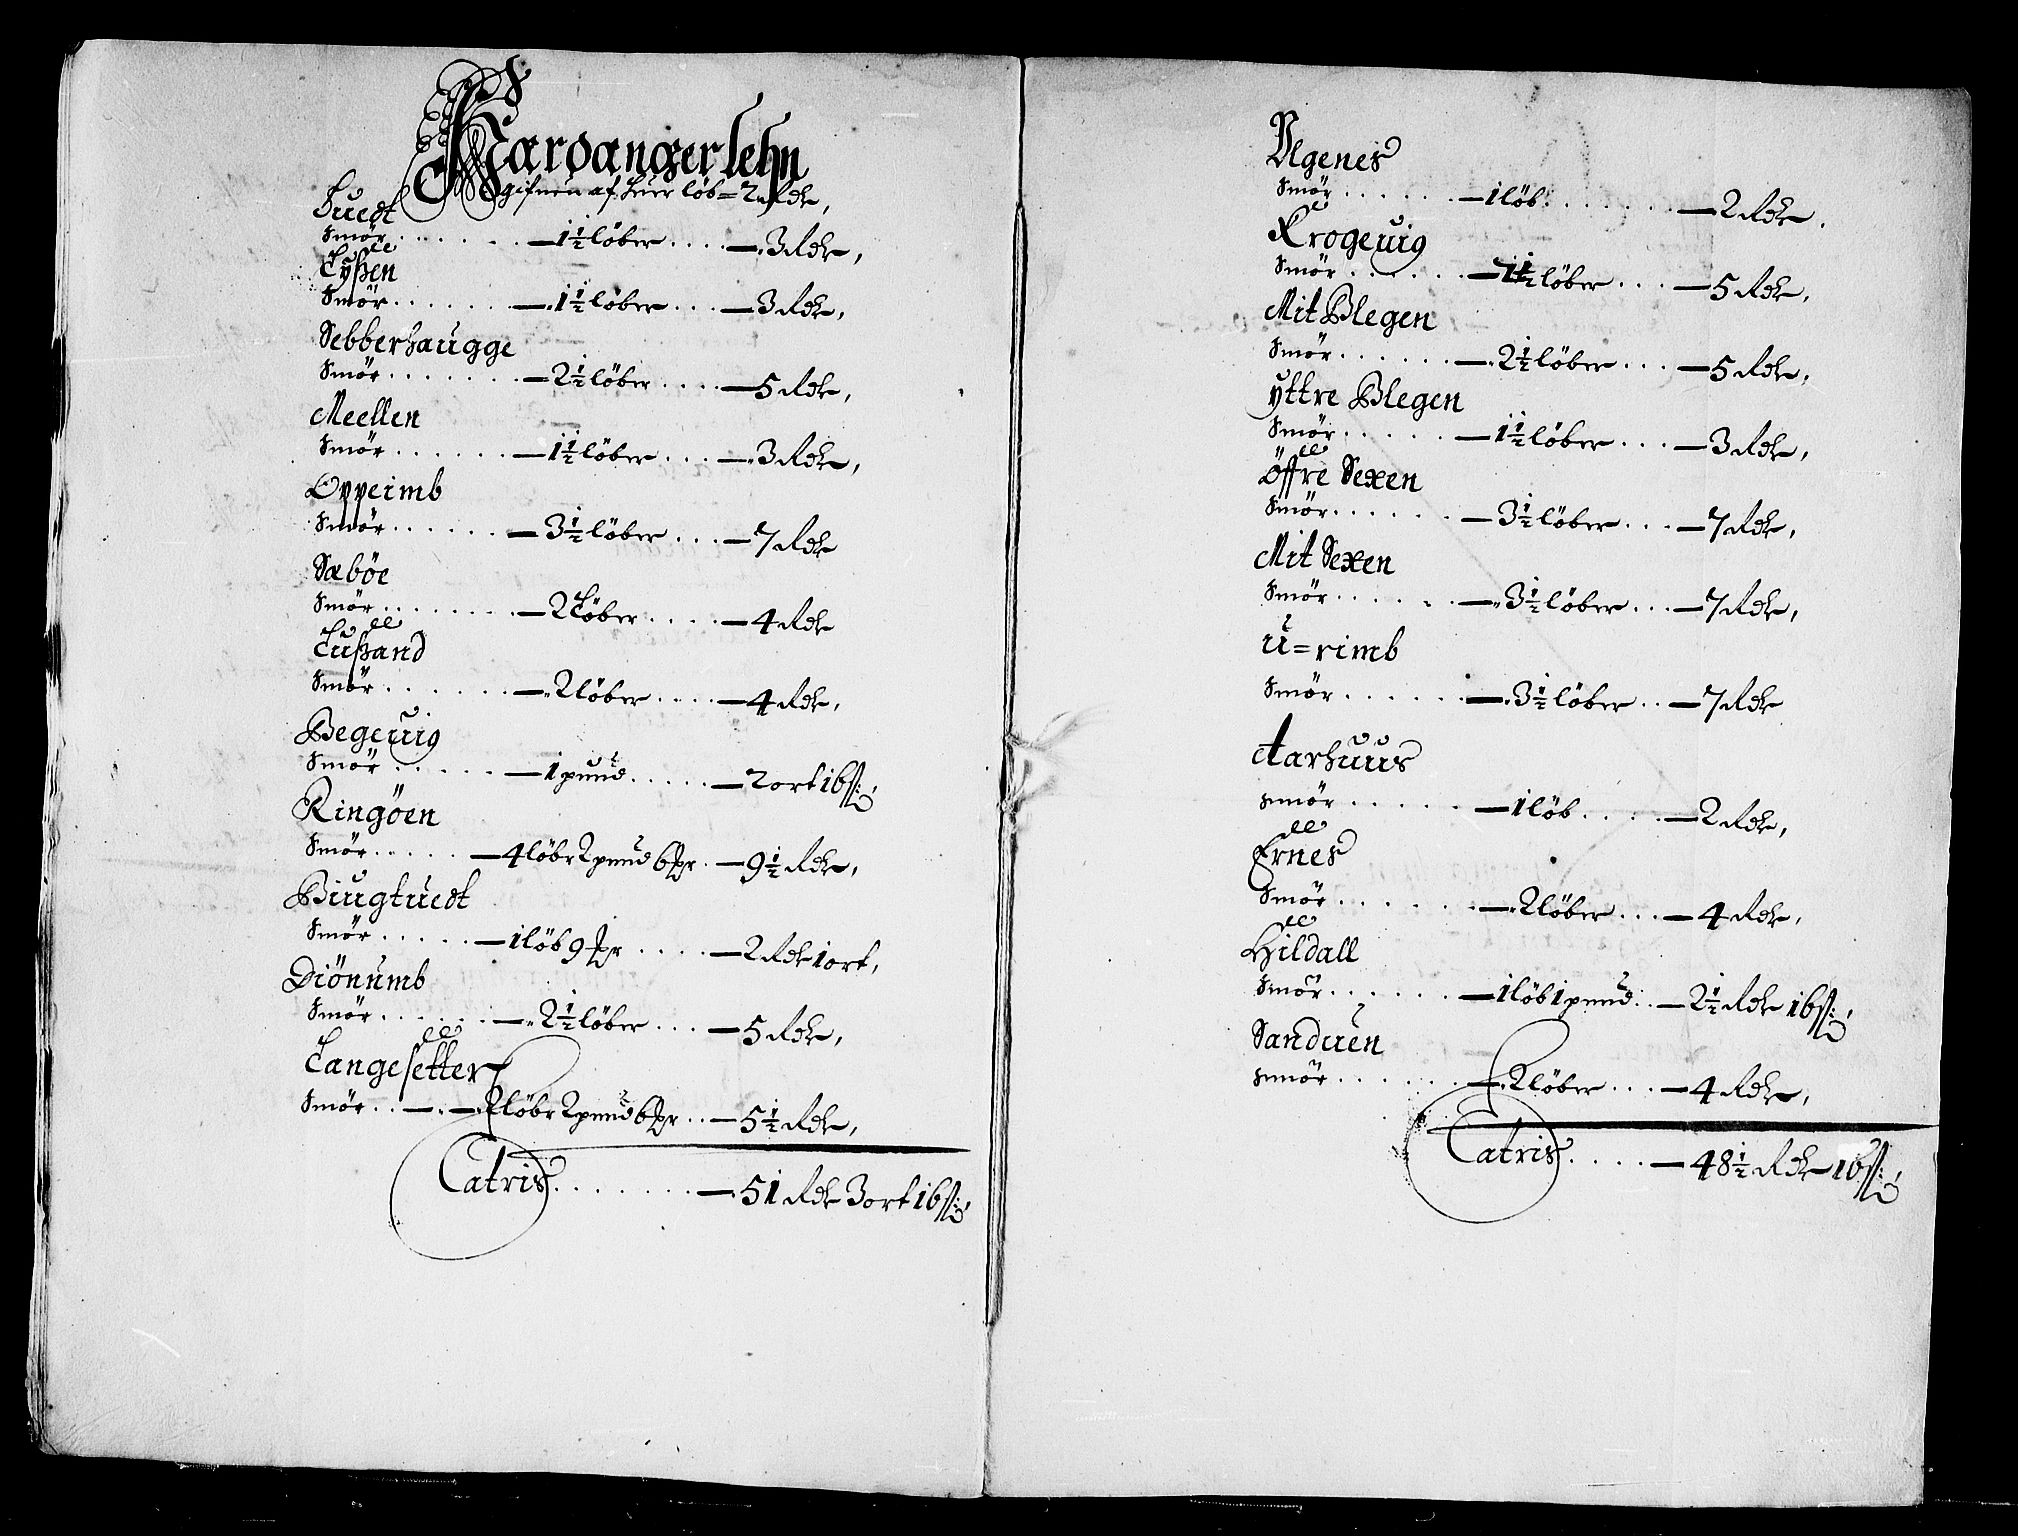 Hardanger lehn
gifuen af huer löb = 2 Rdr,
Huedt
Smör . . . . . . — 1½ löber . . . . — 3 Rdr,
Lÿßen
Smör . . . . . . — 1½ löber . . . — 3 Rdr,
Sebberhaugge
Smör . . . . . . . — 2½ löber . . . . — 5 Rdr,
Meellen
Smör . . . . . . — 1½ löber . . . — 3 Rdr,
Oppeimb
Smör . . . . . . — 3½ löber . . . — 7 Rdr
Sæböe
Smör . . . . . . . — 2 Löber . . . . — 4 Rdr
Lußand
Smör . . . . . . — 2 löber . . . . — 4 Rdr,
Begeuig
Smör . . . . . — 1 pund . . . . . — 2 ort 16 ß
Ringöen
Smör . . . . . — 4 löbr 2 pund 6 pr . — 9½ Rdr,
Biugtuedt
Smör . . . . . — 1 löb 9 pr . . . . — 2 Rdr 1 ort,
Diönumb
Smör . . . . . . — 2½ löber . . . — 5 Rdr,
Langesetter
Smör . . — . — 2 löbr 2 pund 6 pr . . — 5½ Rdr,
Latris . . . . . . . — 51 Rdr 3 ort 16 ß
Algenes
Smör . . . . . . — 1 löb . . . . . . — 2 Rdr.
Krogeuig
Smör . . . . . . — 2½ löber . . . — 5 Rdr,
Mit Blegen
Smör . . . . . . — 2½ löber . . . — 5 Rdr,
yttre Blegen
Smör . . . . . — 1½ löber . . . — 3 Rdr,
Öffre Sexen
Smör . . . . . . — 3½ löber . . . — 7 Rdr,
Mit Sexen
Smör . . . . . . — 3½ löber . . . — 7 Rdr,
U=rimb
Smör . . . . . . — 3½ löber . . — 7 Rdr
Aarhuus
smör . . . . . — 1 löb . . . . — 2 Rdr,
Ernes
Smör . . . . . . — 2 löber . . . — 4 Rdr,
Hildall
Smör . . . . . . — 1 löb 1 pund . . — 2½ Rdr 16 ß
Sanduen
smör . . . . . . — 2 löber . . . — 4 Rdr,
Latris . . . . — 48½ Rdr 16 ß